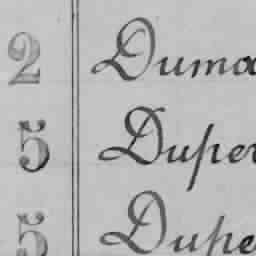 2 Duma
5 Duper
5 Dupe